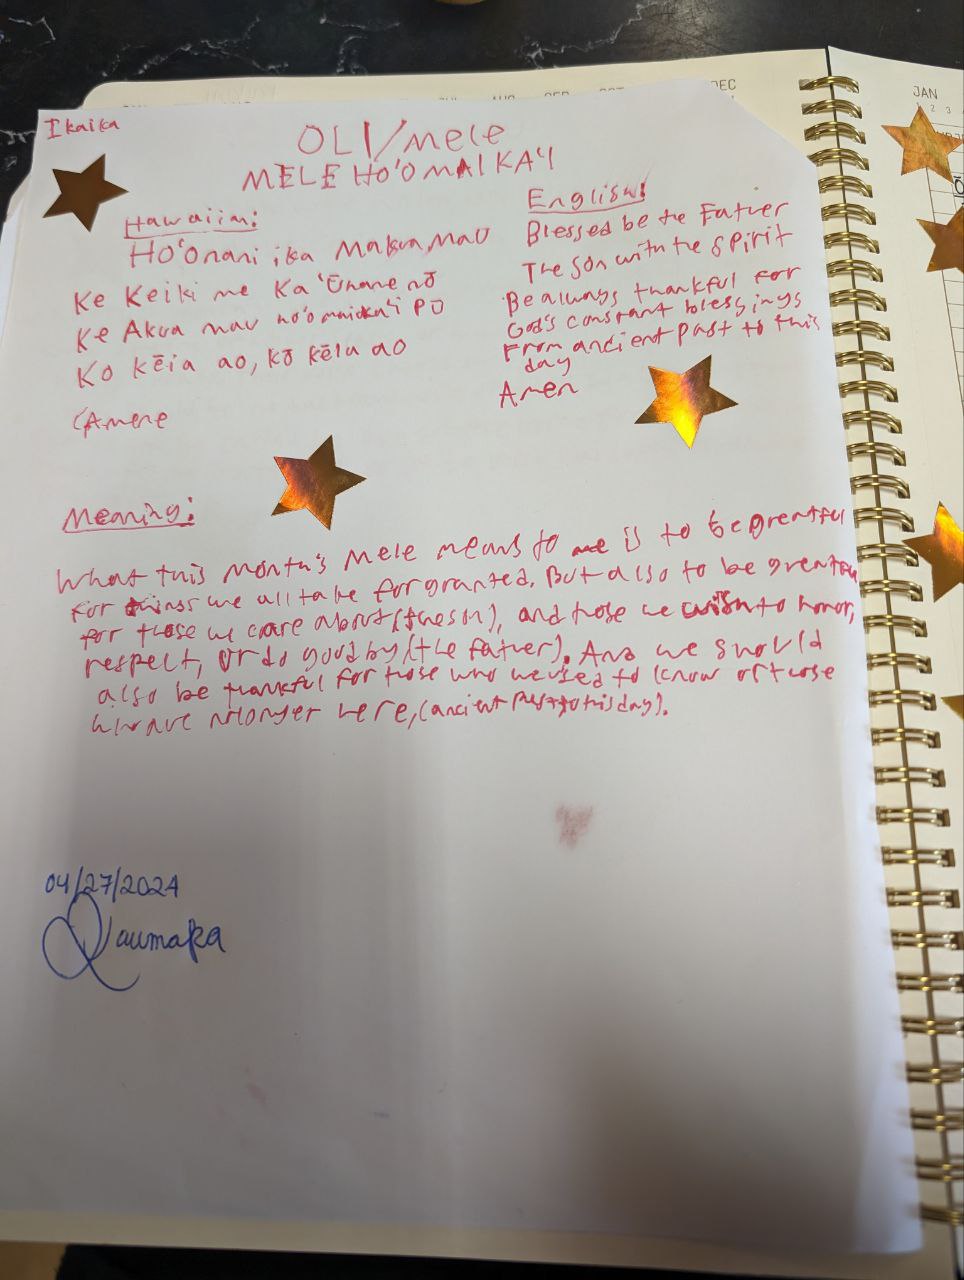 Ikaika
OLI/mele
MELE HO'OMAIKA'I
Hawaiian:
Ho'onani ika Makua Mau
Ke Keiki me Ka 'Ūnane nō
Ke Akua mau ho'omaika'i Pō
Ko kēia ao, kō kēla ao
(Amene
English:
Blessed be the Father
The Son with the Spirit
Be always thankful for
God's constant blessings
From ancient past to this
day
Amen
Meaning:
What this month's Mele means to me is to be greatful
for things we all take for granted. But also to be greatful
for those we care about (the son), and those we wish to honor,
respect, or do good by (the father). And we should
also be thankful for those who we used to know or those
who are no longer here, (ancient past to this day).
04/27/2024
DEC
JAN